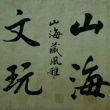 山海
山海藏風雅
文玩